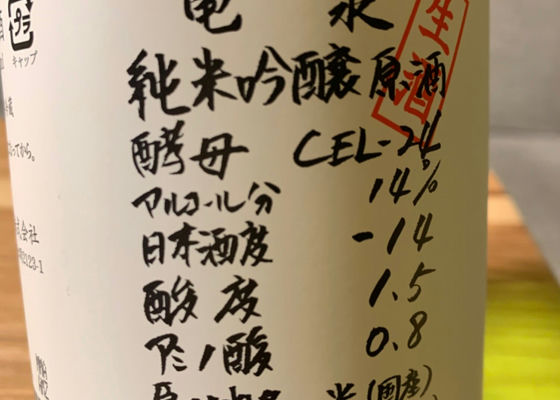 亀泉
生酒
純米吟醸原酒
酵母 CEL-24
アルコール分 14%
日本酒度 -14
酸度 1.5
アミノ酸 0.8
米(国産)
プラ
キャップ
てから。
式会社
2123-1